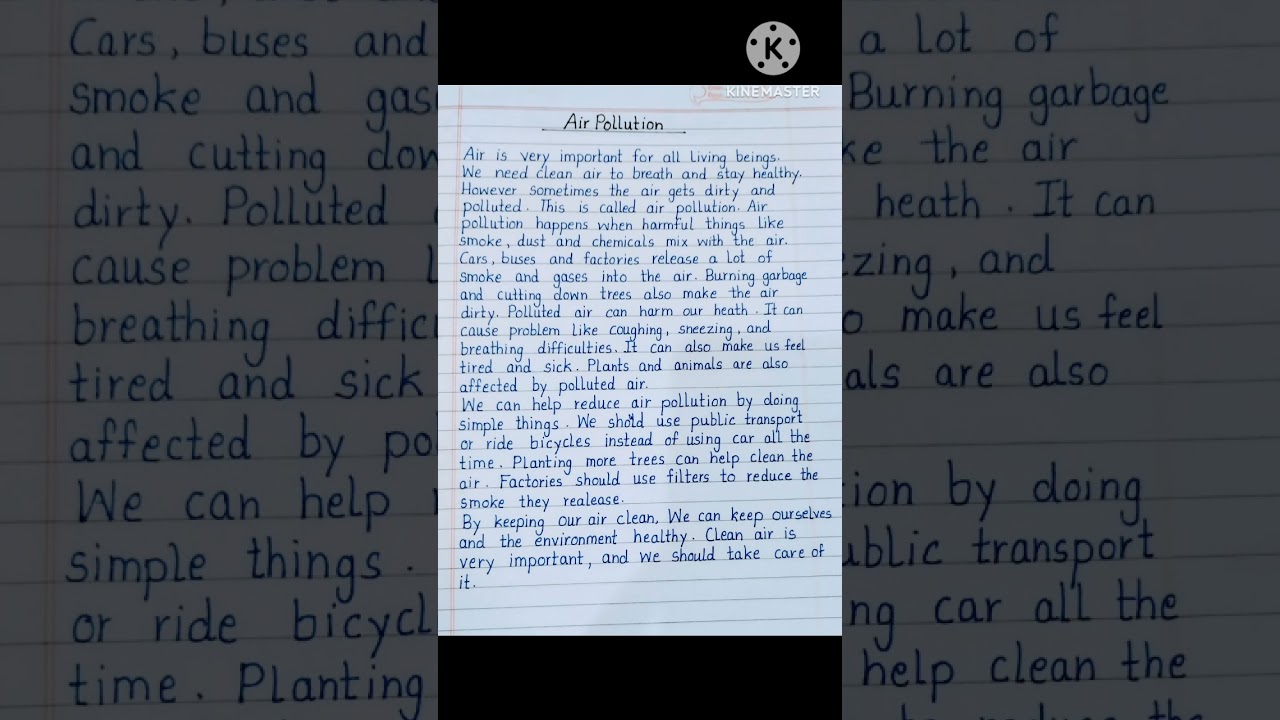 K
KINEMASTER
Air Pollution
Air is very important for all living beings.
We need clean air to breath and stay healthy.
However sometimes the air gets dirty and
polluted. This is called air pollution. Air
pollution happens when harmful things like
smoke, dust and chemicals mix with the air.
Cars, buses and factories release a lot of
smoke and gases into the air. Burning garbage
and cutting down trees also make the air
dirty. Polluted air can harm our heath. It can
cause problem like coughing, sneezing, and
breathing difficulties. It can also make us feel
tired and sick. Plants and animals are also
affected by polluted air.
We can help reduce air pollution by doing
simple things. We should use public transport
or ride bicycles instead of using car all the
time. Planting more trees can help clean the
air. Factories should use filters to reduce the
smoke they realease.
By keeping our air clean, We can keep ourselves
and the environment healthy. Clean air is
very important, and we should take care of
it.